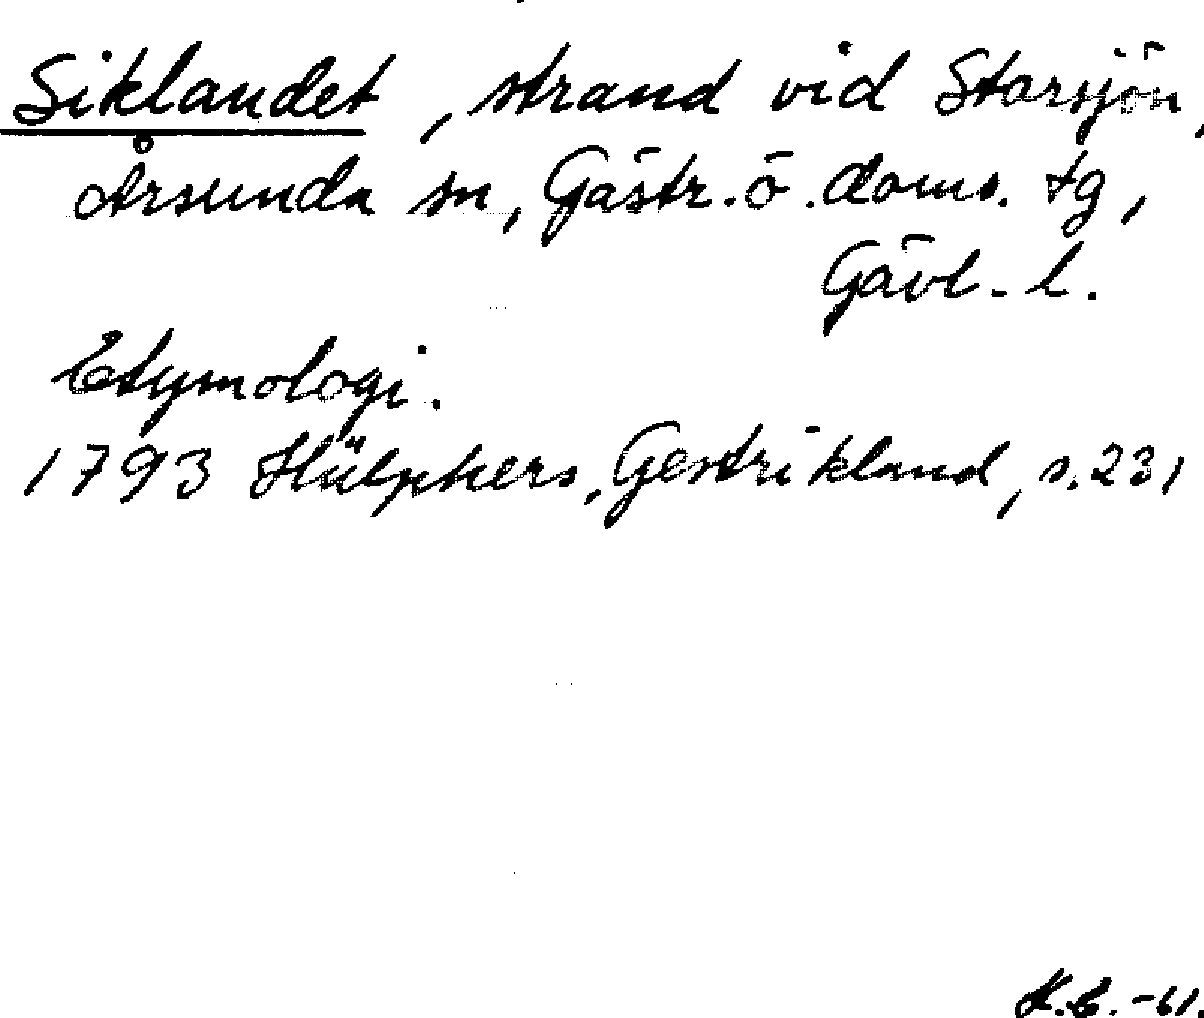 Siklandet, strand vid Storsjön,
Årsunda sn, Gästr. ö. doms. tg,
Gävl. l.
Etymologi.
1793 Hülphers, Gestrikland, s. 231
K.C. -61.